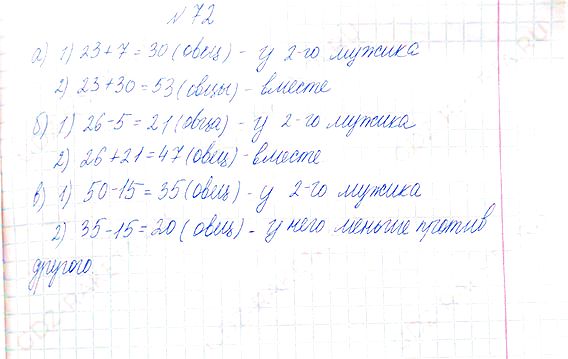 № 72
а) 1) 23+7=30 (овец) - у 2-го мужика
2) 23+30=53 (овцы) - вместе
б) 1) 26-5=21 (овца) - у 2-го мужика
2) 26+21=47 (овец) - вместе
в) 1) 50-15=35 (овец) - у 2-го мужика
2) 35-15=20 (овец) - у него меньше против
другого.